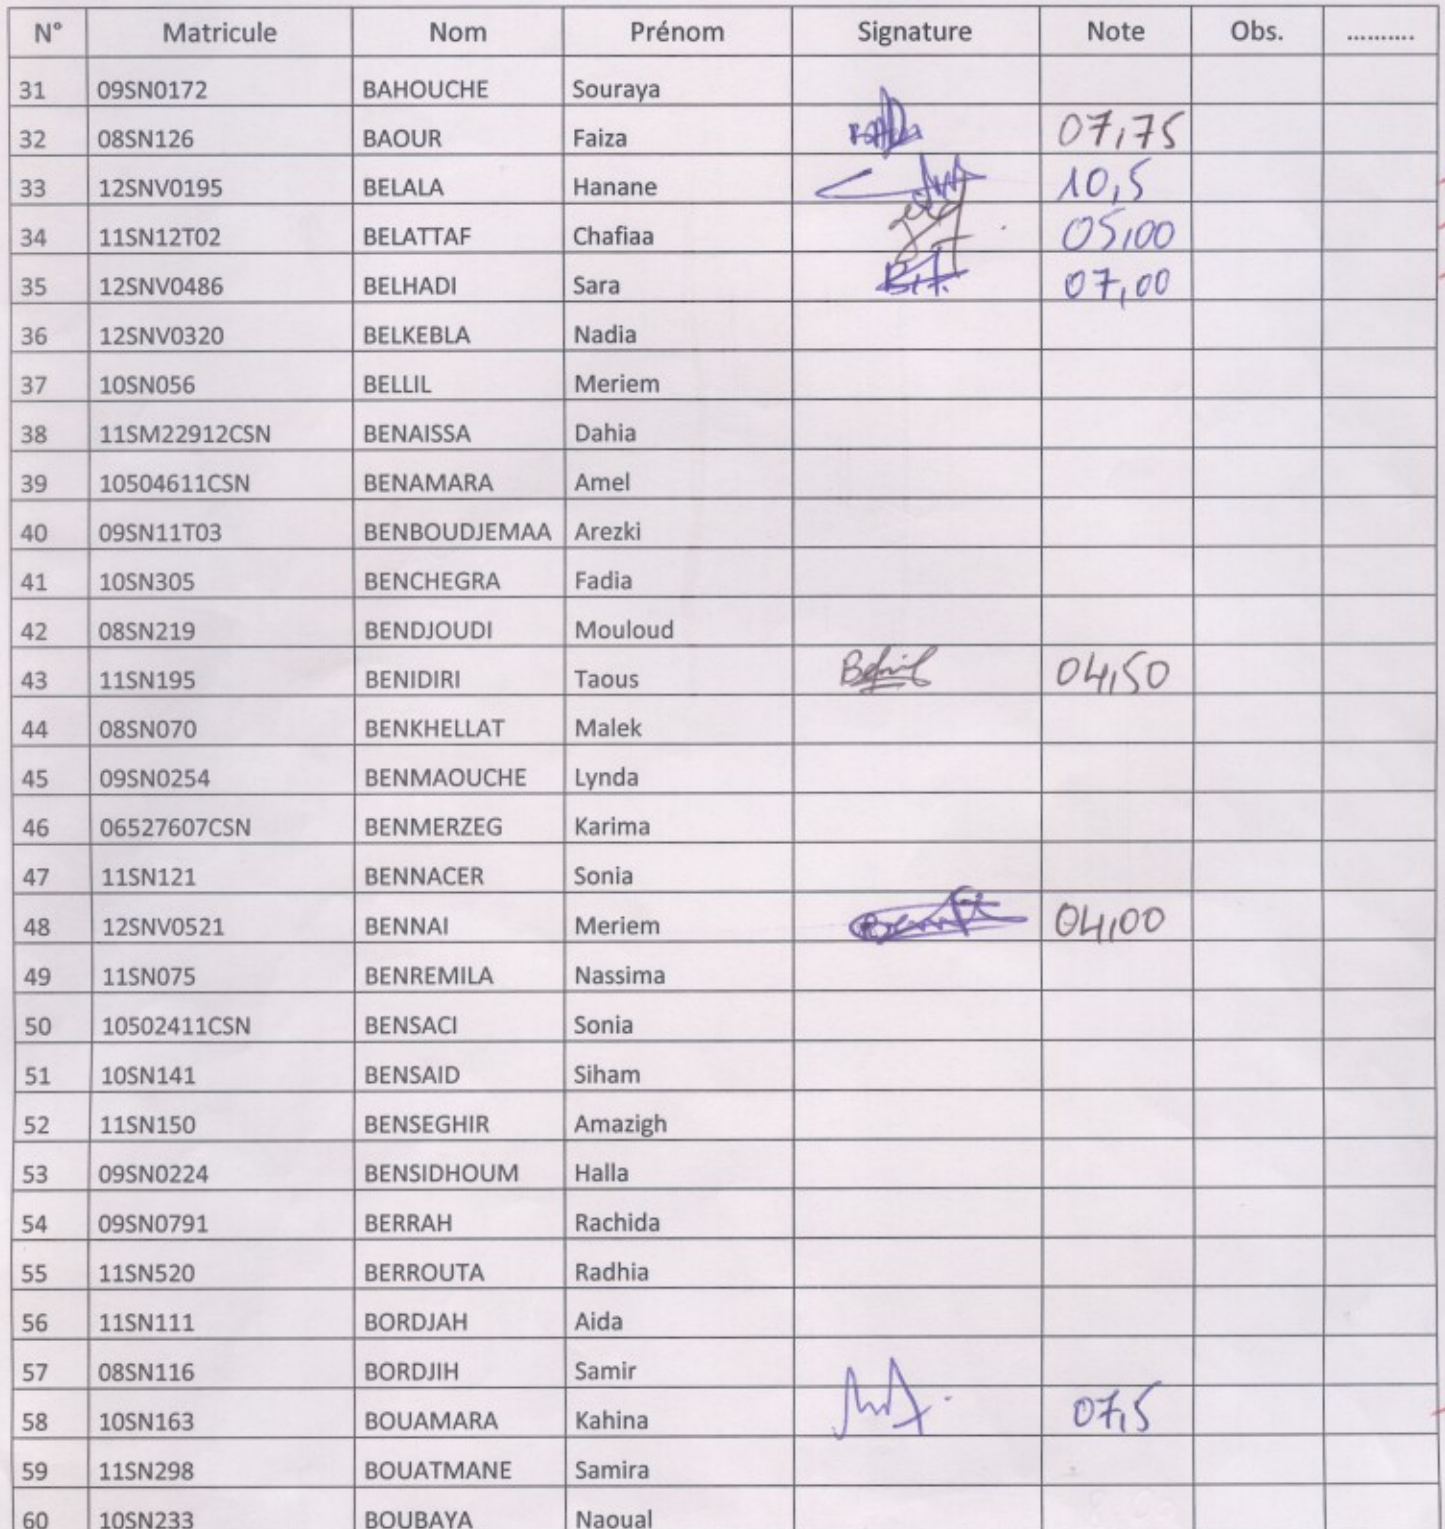 N° Matricule Nom Prénom Signature Note Obs. ..........
31 09SN0172 BAHOUCHE Souraya
32 08SN126 BAOUR Faiza 07,75
33 12SNV0195 BELALA Hanane 10,5
34 11SN12T02 BELATTAF Chafiaa 05,00
35 12SNV0486 BELHADI Sara 07,00
36 12SNV0320 BELKEBLA Nadia
37 10SN056 BELLIL Meriem
38 11SM22912CSN BENAISSA Dahia
39 10504611CSN BENAMARA Amel
40 09SN11T03 BENBOUDJEMAA Arezki
41 10SN305 BENCHEGRA Fadia
42 08SN219 BENDJOUDI Mouloud
43 11SN195 BENIDIRI Taous 04,50
44 08SN070 BENKHELLAT Malek
45 09SN0254 BENMAOUCHE Lynda
46 06527607CSN BENMERZEG Karima
47 11SN121 BENNACER Sonia
48 12SNV0521 BENNAI Meriem 04,00
49 11SN075 BENREMILA Nassima
50 10502411CSN BENSACI Sonia
51 10SN141 BENSAID Siham
52 11SN150 BENSEGHIR Amazigh
53 09SN0224 BENSIDHOUM Halla
54 09SN0791 BERRAH Rachida
55 11SN520 BERROUTA Radhia
56 11SN111 BORDJAH Aida
57 08SN116 BORDJIH Samir
58 10SN163 BOUAMARA Kahina 07,5
59 11SN298 BOUATMANE Samira
60 10SN233 BOUBAYA Naoual